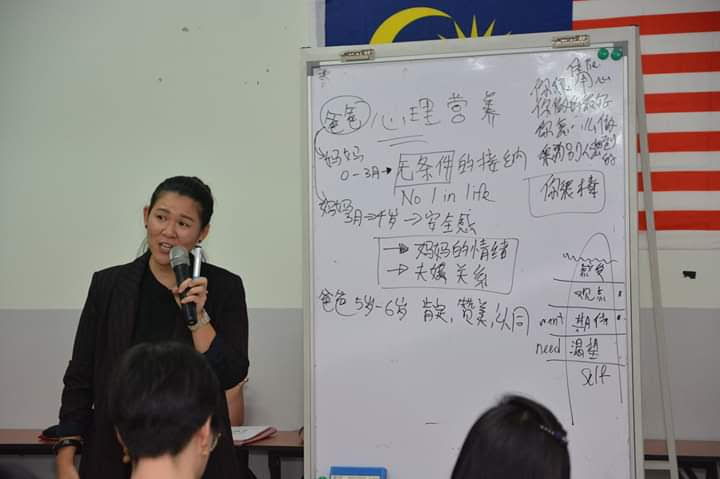 爸爸 心理营养
妈妈
0-3月→无条件的接纳
No 1 in life
妈妈
3月→4岁→安全感
→妈妈的情绪
→夫妻关系
爸爸 5岁-6岁 肯定,赞美,认同
你很用心
你做的很好
你很棒
感受
观点
want 期待
need 渴望
Self